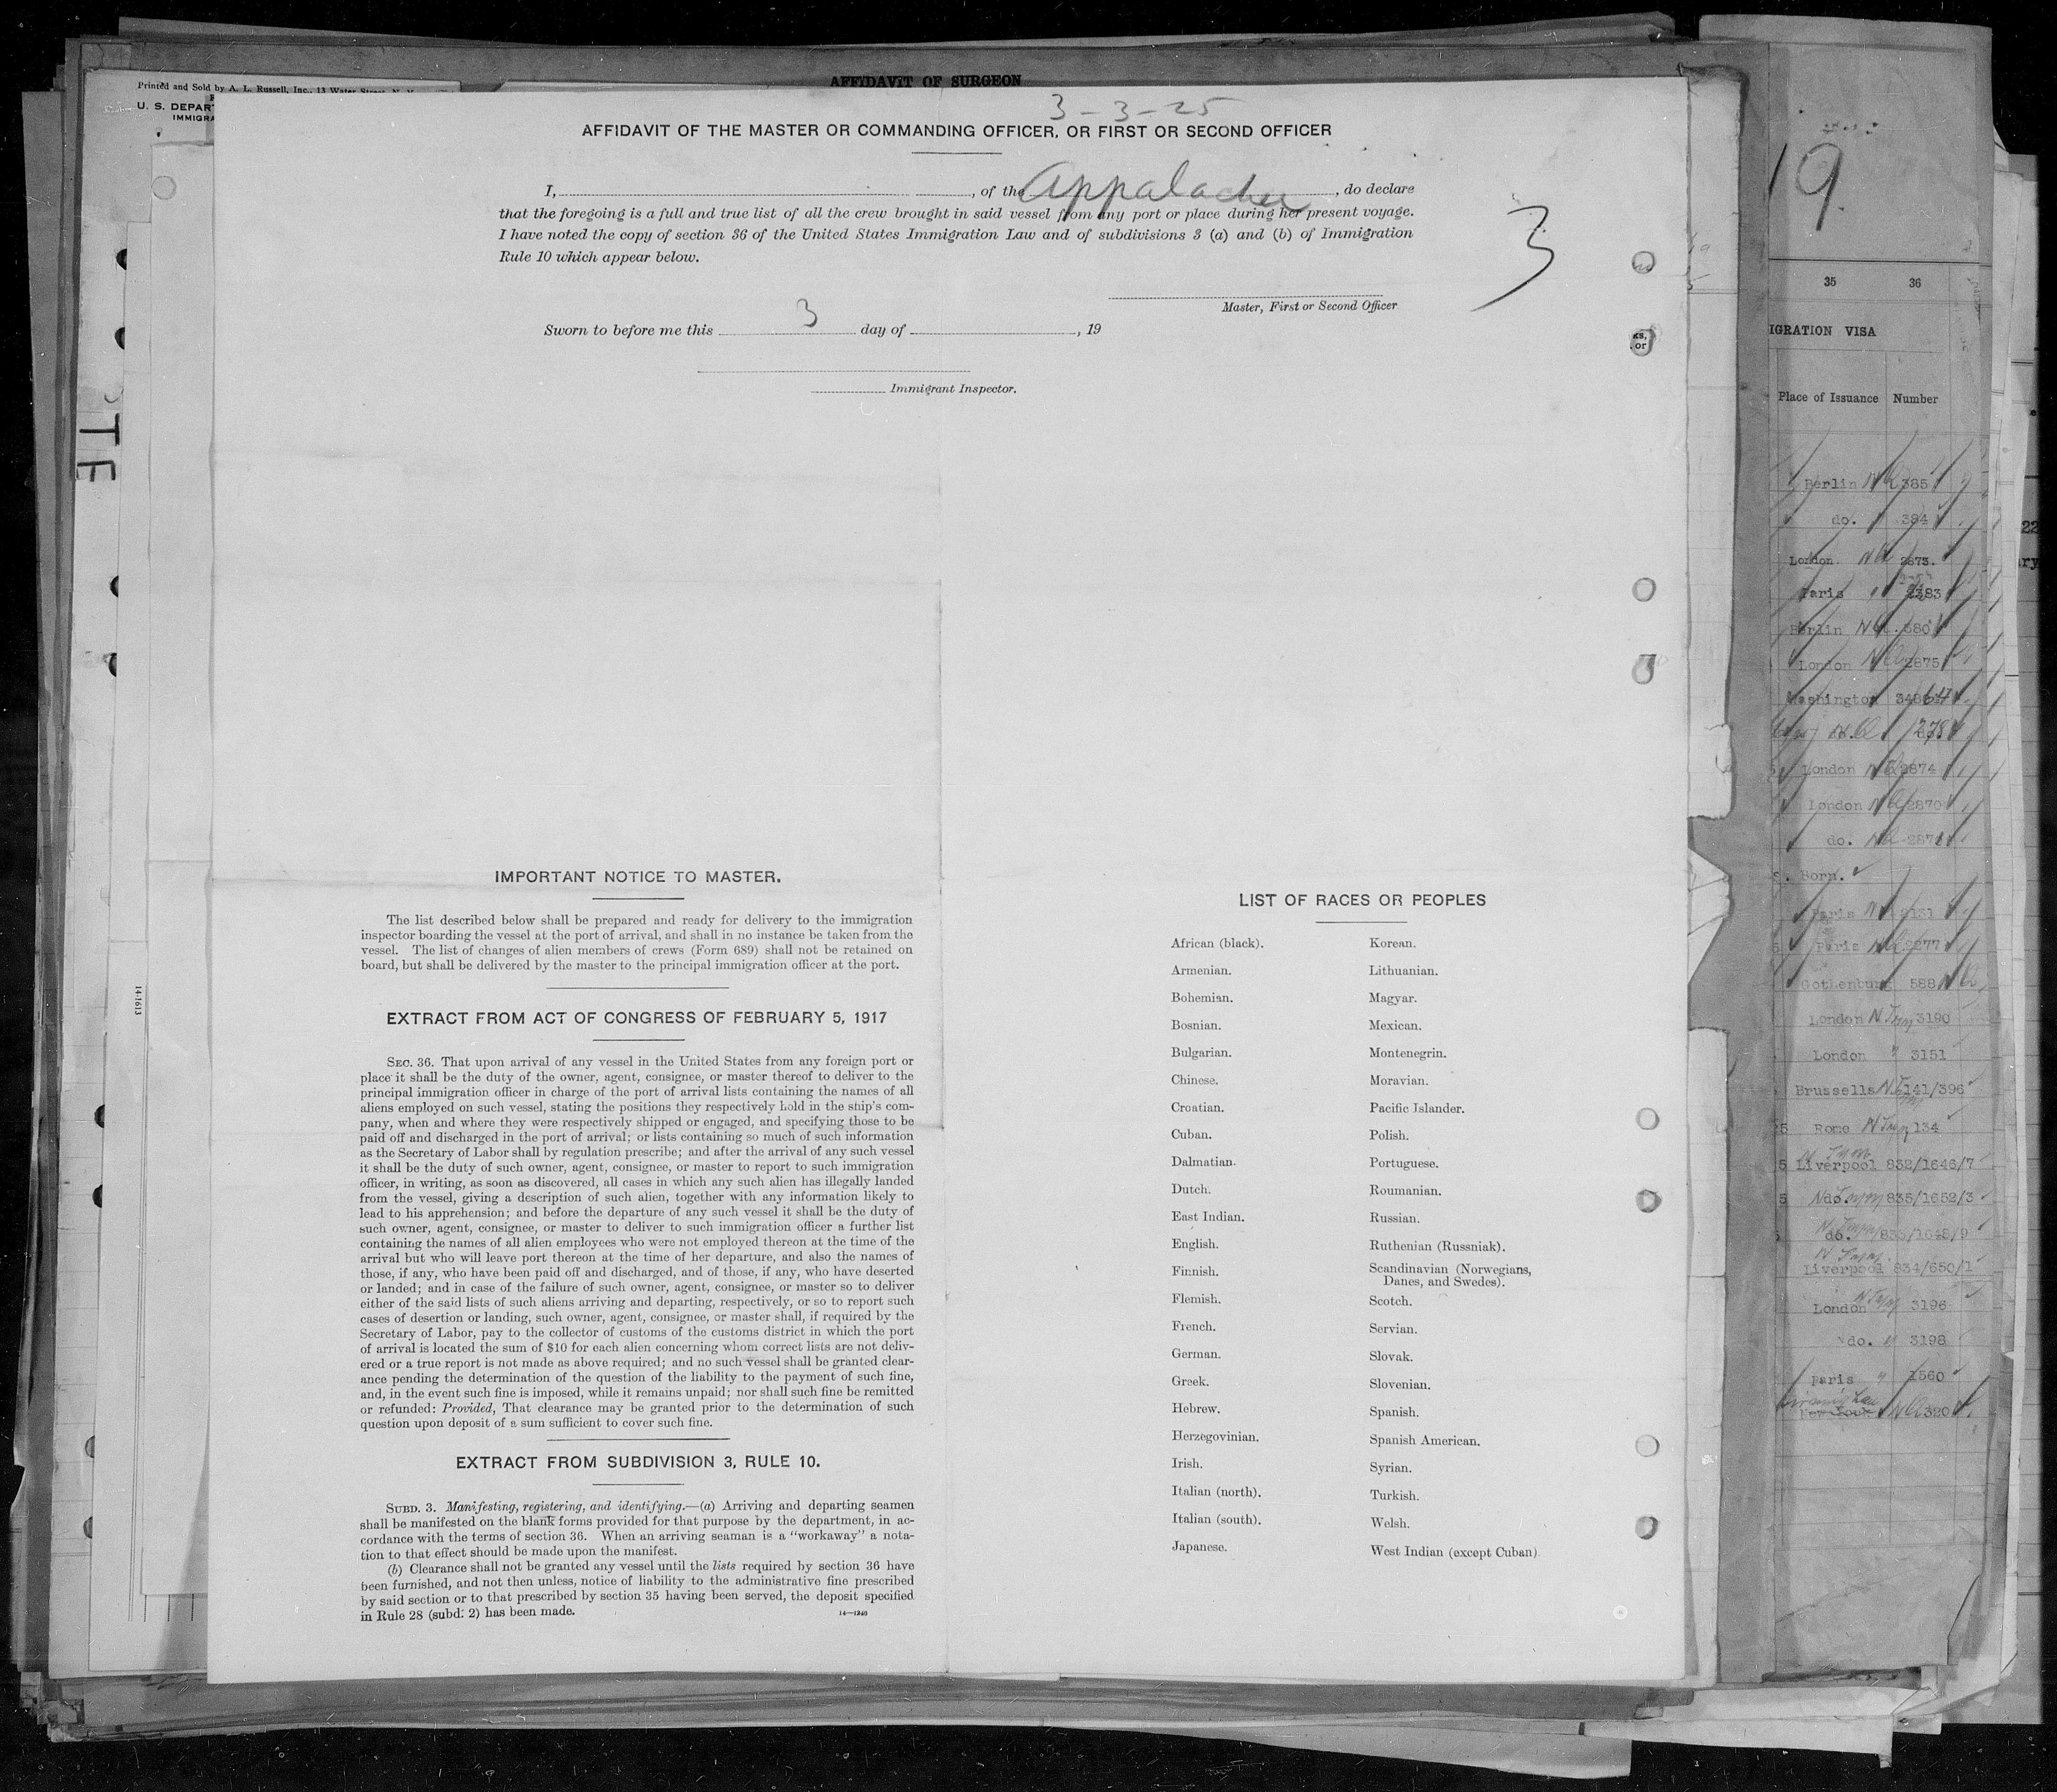 Printed and Sold by A. L. Russell, Inc., 13 Water Street, N. Y.
U. S. DEPART
IMMIGRA
AFFIDAVIT OF SURGEON
3-3-25
AFFIDAVIT OF THE MASTER OR COMMANDING OFFICER, OR FIRST OR SECOND OFFICER
I, , of the Appalachee, do declare
that the foregoing is a full and true list of all the crew brought in said vessel from any port or place during her present voyage.
I have noted the copy of section 36 of the United States Immigration Law and of subdivisions 3 (a) and (b) of Immigration
Rule 10 which appear below.
3
Master, First or Second Officer
Sworn to before me this 3 day of , 19
Immigrant Inspector.
IMPORTANT NOTICE TO MASTER.
The list described below shall be prepared and ready for delivery to the immigration
inspector boarding the vessel at the port of arrival, and shall in no instance be taken from the
vessel. The list of changes of alien members of crews (Form 689) shall not be retained on
board, but shall be delivered by the master to the principal immigration officer at the port.
EXTRACT FROM ACT OF CONGRESS OF FEBRUARY 5, 1917
SEC. 36. That upon arrival of any vessel in the United States from any foreign port or
place it shall be the duty of the owner, agent, consignee, or master thereof to deliver to the
principal immigration officer in charge of the port of arrival lists containing the names of all
aliens employed on such vessel, stating the positions they respectively hold in the ship's com-
pany, when and where they were respectively shipped or engaged, and specifying those to be
paid off and discharged in the port of arrival; or lists containing so much of such information
as the Secretary of Labor shall by regulation prescribe; and after the arrival of any such vessel
it shall be the duty of such owner, agent, consignee, or master to report to such immigration
officer, in writing, as soon as discovered, all cases in which any such alien has illegally landed
from the vessel, giving a description of such alien, together with any information likely to
lead to his apprehension; and before the departure of any such vessel it shall be the duty of
such owner, agent, consignee, or master to deliver to such immigration officer a further list
containing the names of all alien employees who were not employed thereon at the time of the
arrival but who will leave port thereon at the time of her departure, and also the names of
those, if any, who have been paid off and discharged, and of those, if any, who have deserted
or landed; and in case of the failure of such owner, agent, consignee, or master so to deliver
either of the said lists of such aliens arriving and departing, respectively, or so to report such
cases of desertion or landing, such owner, agent, consignee, or master shall, if required by the
Secretary of Labor, pay to the collector of customs of the customs district in which the port
of arrival is located the sum of $10 for each alien concerning whom correct lists are not deliv-
ered or a true report is not made as above required; and no such vessel shall be granted clear-
ance pending the determination of the question of the liability to the payment of such fine,
and, in the event such fine is imposed, while it remains unpaid; nor shall such fine be remitted
or refunded: Provided, That clearance may be granted prior to the determination of such
question upon deposit of a sum sufficient to cover such fine.
EXTRACT FROM SUBDIVISION 3, RULE 10.
SUBD. 3. Manifesting, registering, and identifying.—(a) Arriving and departing seamen
shall be manifested on the blank forms provided for that purpose by the department, in ac-
cordance with the terms of section 36. When an arriving seaman is a "workaway" a nota-
tion to that effect should be made upon the manifest.
(b) Clearance shall not be granted any vessel until the lists required by section 36 have
been furnished, and not then unless, notice of liability to the administrative fine prescribed
by said section or to that prescribed by section 35 having been served, the deposit specified
in Rule 28 (subd. 2) has been made.
14—1240
14-1613
LIST OF RACES OR PEOPLES
African (black).
Armenian.
Bohemian.
Bosnian.
Bulgarian.
Chinese.
Croatian.
Cuban.
Dalmatian.
Dutch.
East Indian.
English.
Finnish.
Flemish.
French.
German.
Greek.
Hebrew.
Herzegovinian.
Irish.
Italian (north).
Italian (south).
Japanese.
Korean.
Lithuanian.
Magyar.
Mexican.
Montenegrin.
Moravian.
Pacific Islander.
Polish.
Portuguese.
Roumanian.
Russian.
Ruthenian (Russniak).
Scandinavian (Norwegians,
Danes, and Swedes).
Scotch.
Servian.
Slovak.
Slovenian.
Spanish.
Spanish American.
Syrian.
Turkish.
Welsh.
West Indian (except Cuban)
19
35 36
IGRATION VISA
Place of Issuance Number
Berlin 385
do. 384
London. 2873.
Paris
Berlin 380
London 2875
Washington
London 2874
London 2870
do. 2871
Born.
Paris
Paris 2277
Gothenburg 588
London 3190
London 3151
Brussells 141/396
Rome 134
Liverpool 832/1646/7
do. 835/1652/3
do.
Liverpool 834/650/1
London 3196
do. 3198
Paris 1560
320